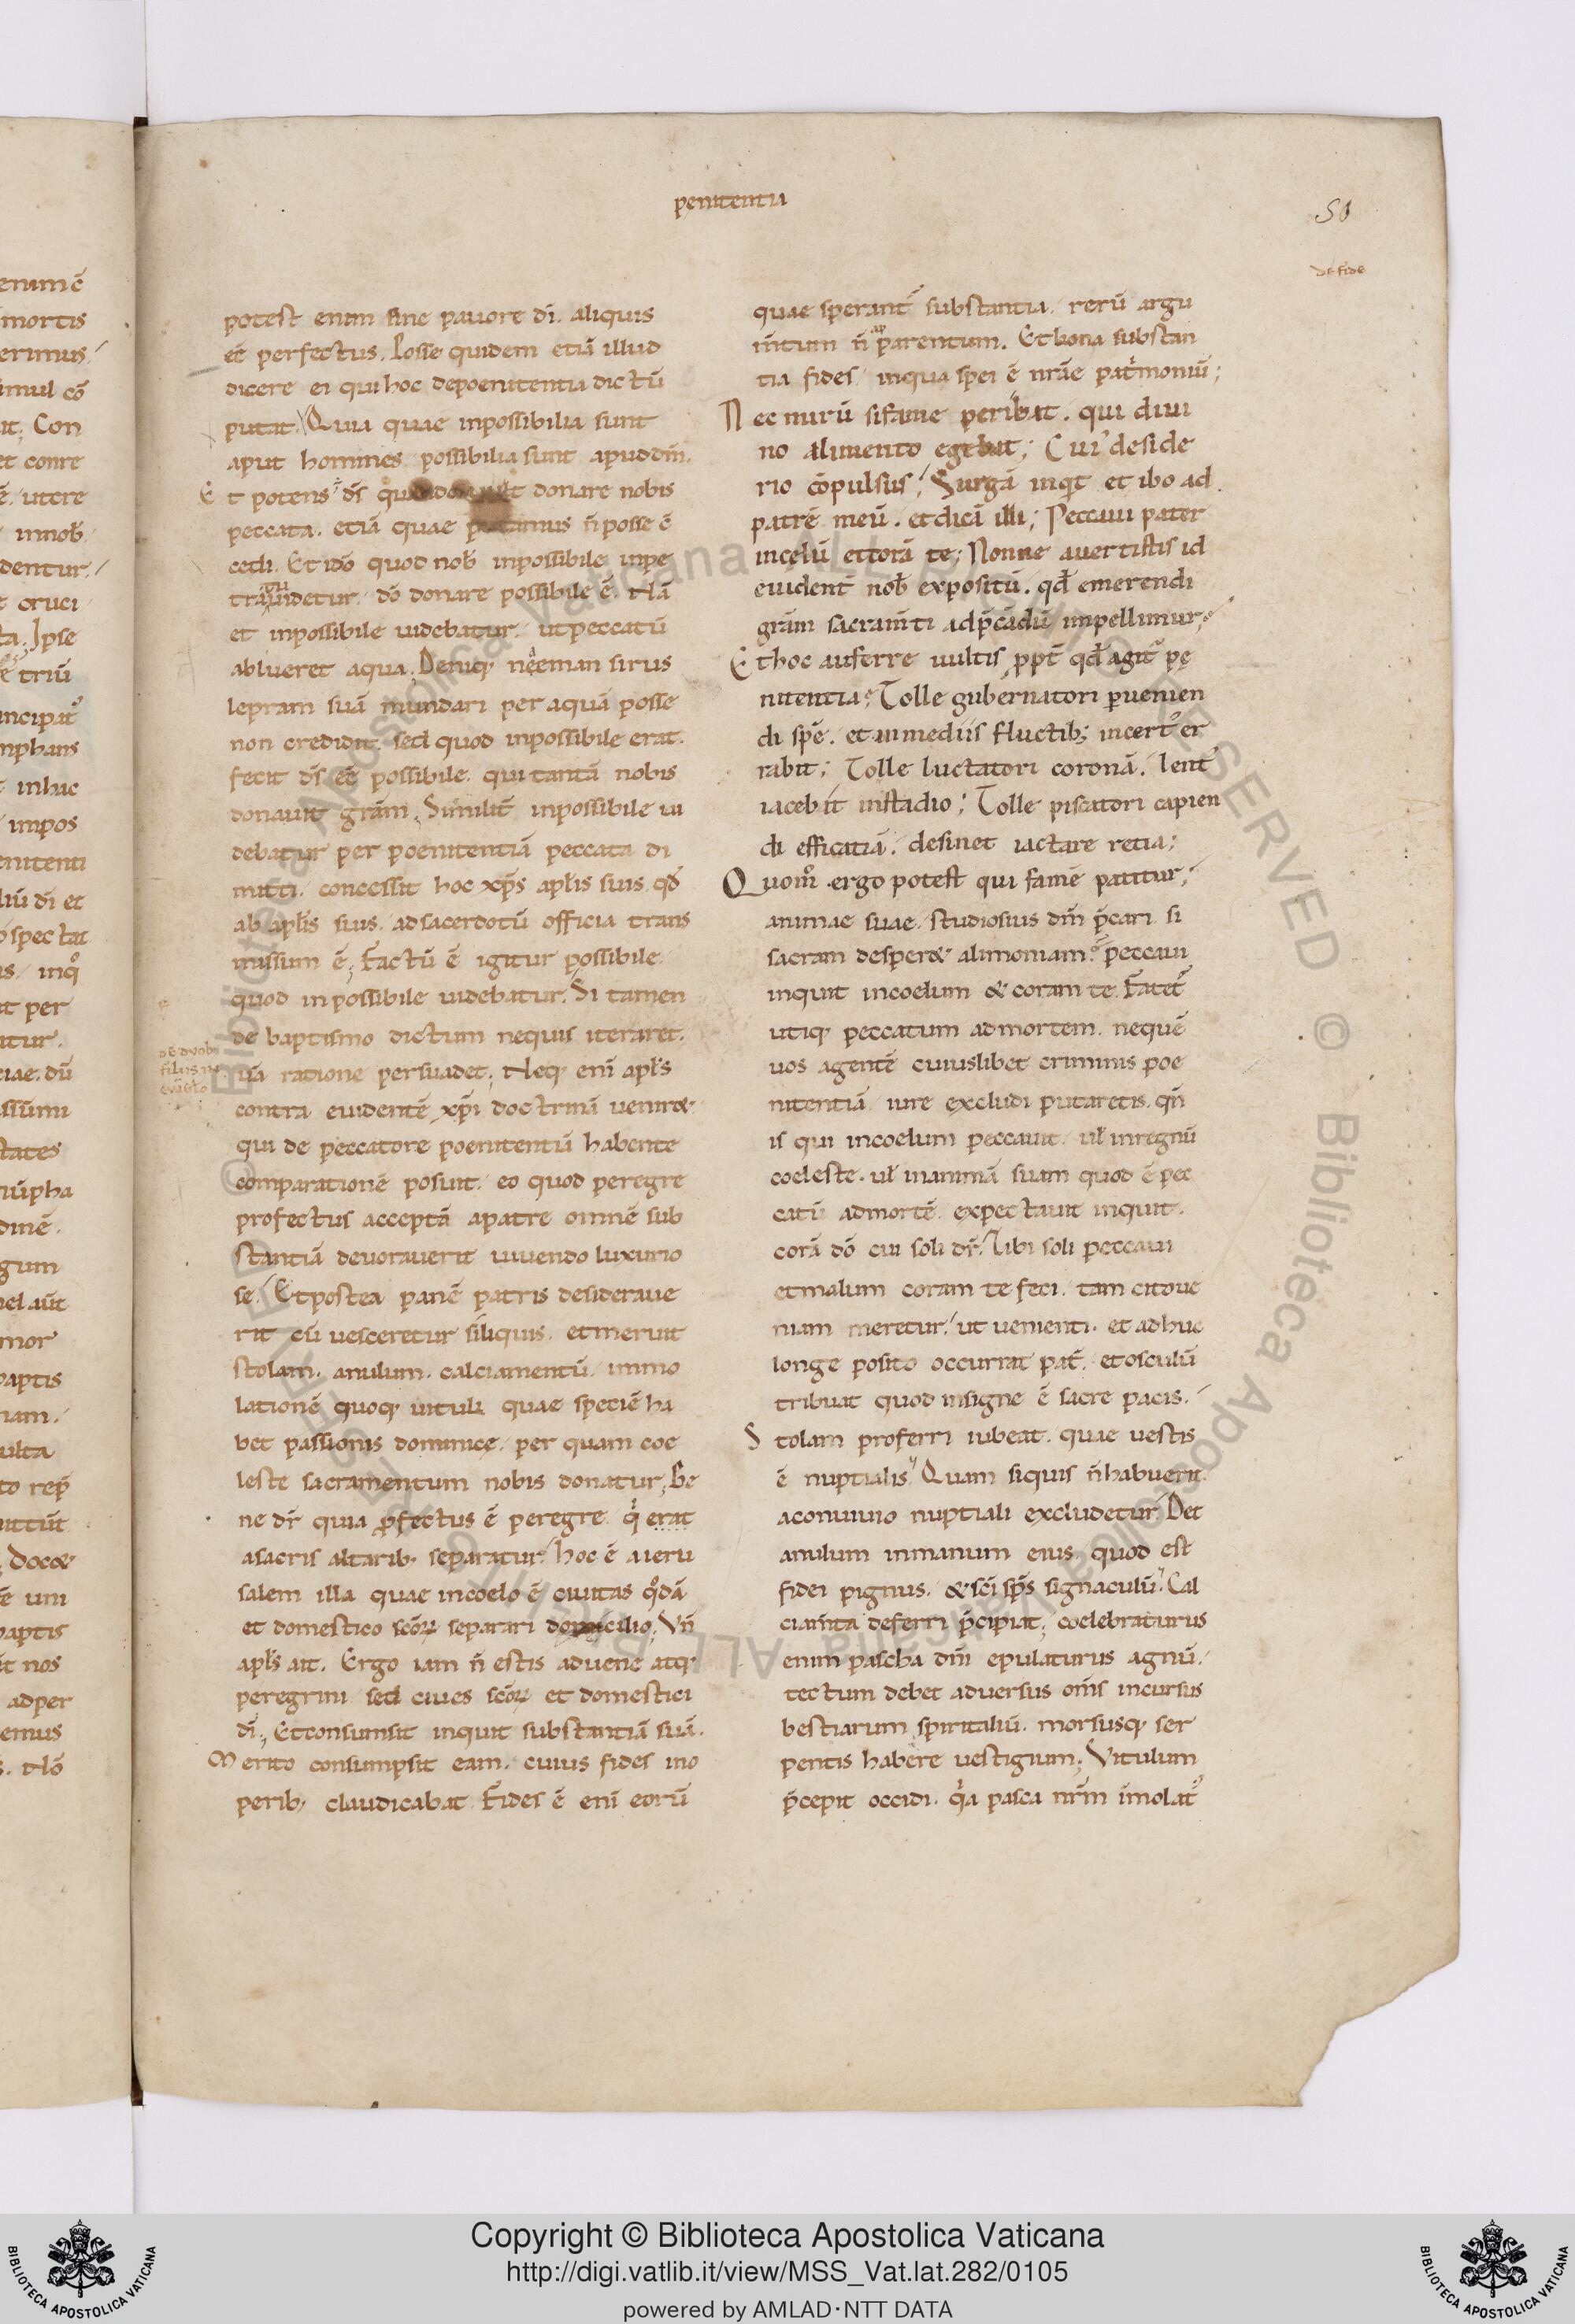 penitentia
51
de fide
potest enim sine pavore dī. aliquis
eē perfectus. Posse quidem etiā illud
dicere ei qui hoc depoenitentia dictū
putat. Quia quae inpossibilia sunt
aput homines. possibilia sunt apud dm̄.
Et potens ē ds̄ donare nobis
peccata. etiā quae putamus n̄ posse c̄
cedi. Et idō quod nob̄ inpossibile inpe
tratu uidetur. dō donare possibile ē. Nā
et inpossibile uidebatur. ut peccatū
ablueret aqua. Deniq; neeman sirus
lepram suā mundari per aquā posse
non credidit. sed quod inpossibile erat.
fecit ds̄ eē possibile. qui tantā nobis
donauit grām. Similit̄ inpossibile ui
debatur per poenitentiā peccata di
mitti. concessit hoc xp̄s apl̄is suis. qd̄
ab apl̄is suis. ad sacerdotū officia trans
missum ē; Factū ē igitur possibile.
quod inpossibile uidebatur. Si tamen
de baptismo dictum nequis iteraret.
uā ratione persuadet; Neq; enī apl̄s
contra euidentē xp̄i doctrinā venir&
qui de peccatore poenitentiā habente
comparationē posuit. eo quod peregre
profectus acceptā apatre omnē sub
stantiā deuorauerit uiuendo luxurio
se. Et postea panē patris desideraue
rit cū uesceretur siliquis. et meruit
stolam. anulum. calciamentū. immo
lationē quoq; uituli quae speciē ha
bet passionis dominicę. per quam coe
leste sacramentum nobis donatur; Be
ne dr̄ quia profectus ē peregre. qi erat
asacris altarib; separatur. hoc ē a ieru
salem illa quae incoelo ē ciuitas qodā
et domestico scōrum separari domicilio; Vn̄
apl̄s ait. Ergo iam n̄ estis aduene atq;
peregrini sed ciues scōrum et domestici
dī; Et consumsit inquit substantiā suā.
Merito consumpsit eam. cuius fides ino
perib; claudicabat. Fides ē enī eorū
de duob;
filiis in
euāglo
quae sperant̄ substantia. rerū argu
m̄tum n̄ apparentum. Et bona substan
tia fides. inqua spei ē nrāe patrimoniū;
Nec mirū si fame peribat. qui diui
no alimento egebat; Cui' deside
rio cōpulsus; Surgā inqt et ibo ad
patrē meū. et dicā illi; Peccaui pater
incęlū et corā te; Nonne auertistis id
euident̄ nob̄ expositū. qd̄ emerendi
grām sacram̄ti ad p̄cādū impellimur;
Et hoc auferre uultis ppt̄ qd̄ agit̄ pę
nitentia; Tolle gubernatori perueuien
di spē. et inmediis fluctib; incert' er
rabit; Tolle luctatori coronā. lent'
iacebit instadio; Tolle piscatori capien
di efficatiā. desinet iactare retia;
Quom̊ ergo potest qui famē patitur;
animae suae. studiosius dm̄ p̄cari. si
sacram desper& alimoniam. peccaui
inquit incoelum & coram te. Fatet̄
utiq; peccatum ad mortem. nequē
uos agentē cuiuslibet criminis poe
nitentiā iure excludi putaretis. qn̄
is qui incoelum peccauit. ul̄ inregnū
coeleste. ul̄ inanimā suam quod ē pec
catū admortē. expectauit inquit.
corā dō cui soli dr̄. Tibi soli peccaui
et malum coram te feci. tam cito ue
niam meretur. ut uenienti. et adhuc
longe posito occurrat pat̄. et osculū
tribuat quod insigne ē sacre pacis.
Stolam proferri iubeat. quae uestis
ē nuptialis. Quam siquis n̄ habuerit.
aconuiuio nuptiali excludetur. Det
anulum inmanum eius. quod est
fidei pignus. & scī sps̄ signaculū. Cal
ciam̄ta deferri p̄cipiat; coelebraturus
enim pascha dn̄i epulaturus agnū.
tectum debet aduersus om̄s incursus
bestiarum spiritaliū. morsusq; ser
pentis habere uestigium; Vitulum
p̄cepit occidi. qia pasca nrm̄ īmolat'
Copyright © Biblioteca Apostolica Vaticana
http://digi.vatlib.it/view/MSS_Vat.lat.282/0105
powered by AMLAD·NTT DATA
BIBLIOTECA APOSTOLICA VATICANA
BIBLIOTECA APOSTOLICA VATICANA